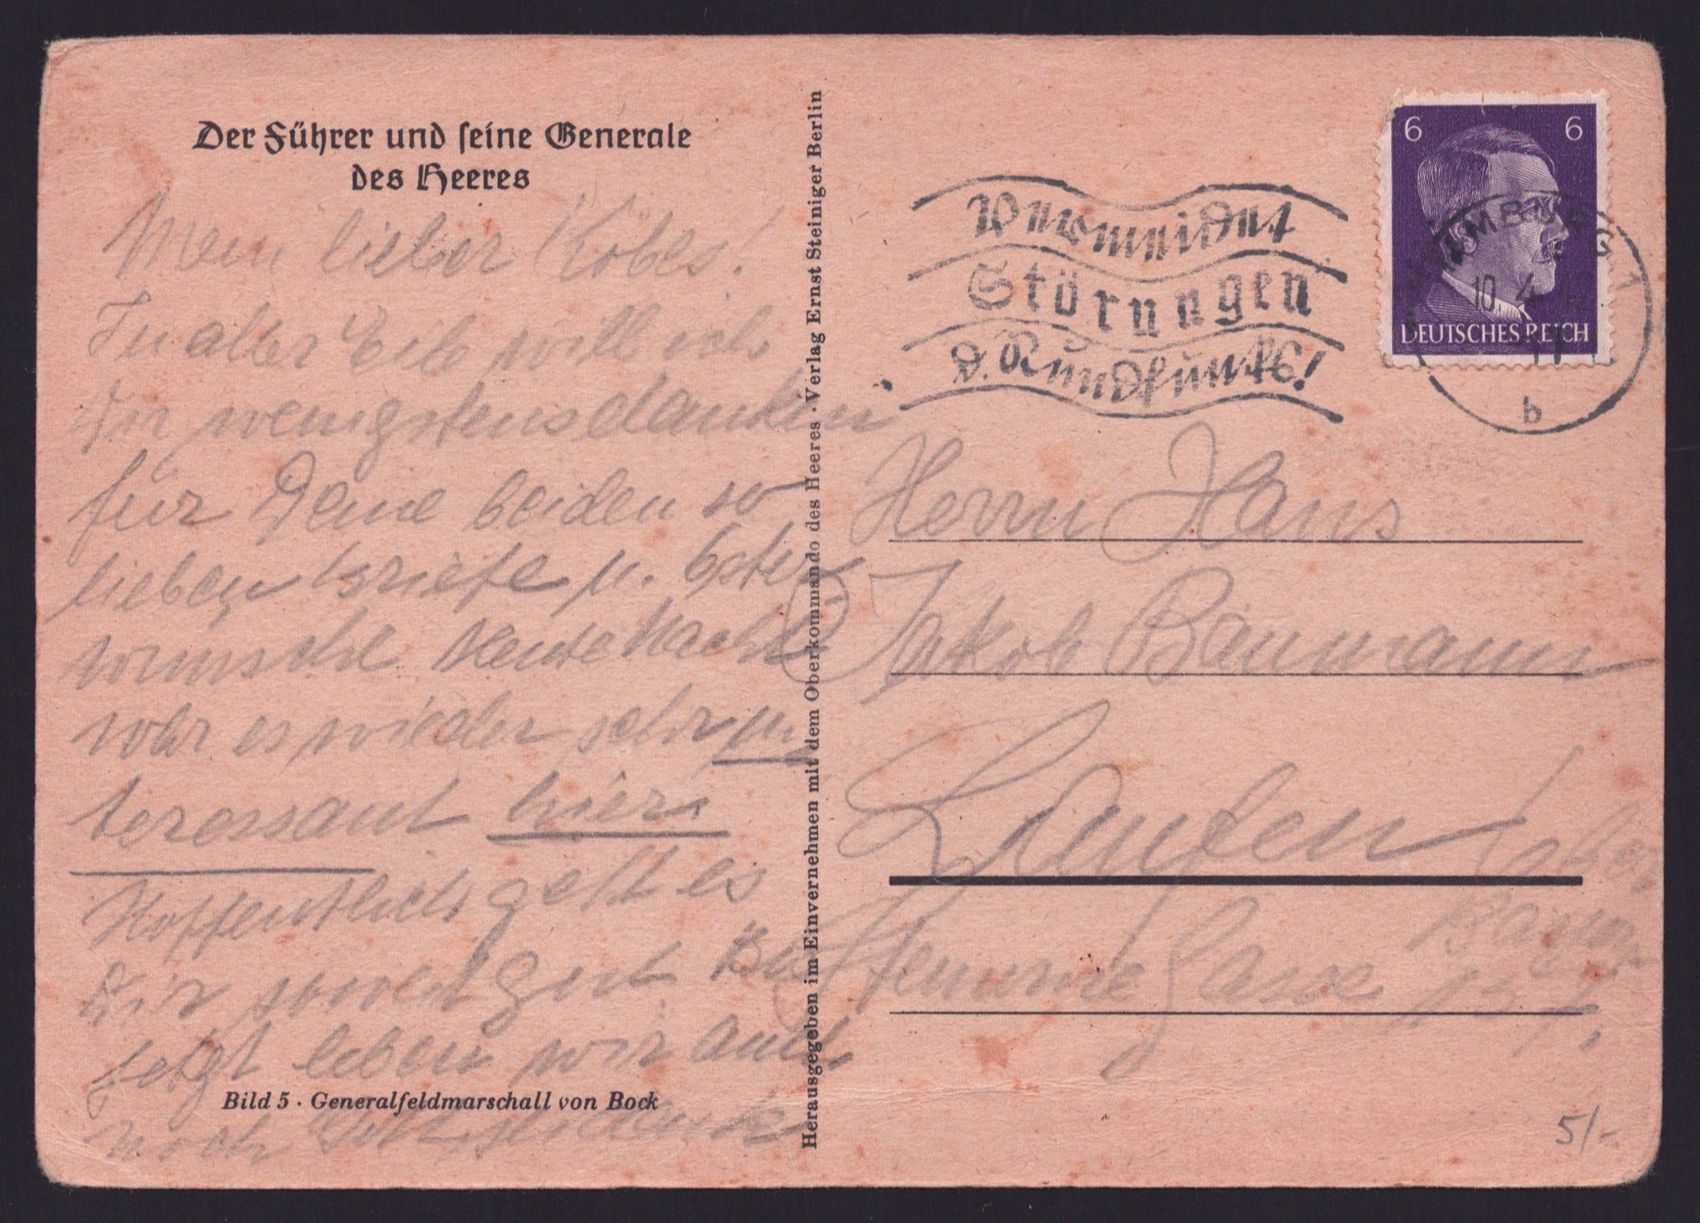 Der Führer und seine Generale
des Heeres
Mein lieber Köbes!
In aller Eile will ich
Dir wenigstens danken
für Deine beiden so
lieben Briefe u. Oster
wünsche Heute Nacht
war es wieder sehr in
teressant hier.
Hoffentlich geht es
Dir soweit gut
Jetzt leben wir auch
noch Gott sei dank
Bild 5 · Generalfeldmarschall von Bock
Herausgegeben im Einvernehmen mit dem Oberkommando des Heeres · Verlag Ernst Steiniger Berlin
Vermeidet
Störungen
d. Rundfunks!
6 6
DEUTSCHES REICH
10. 4.
b
Herrn Hans
Jakob Baumann
Laufen
Gasse
5/-